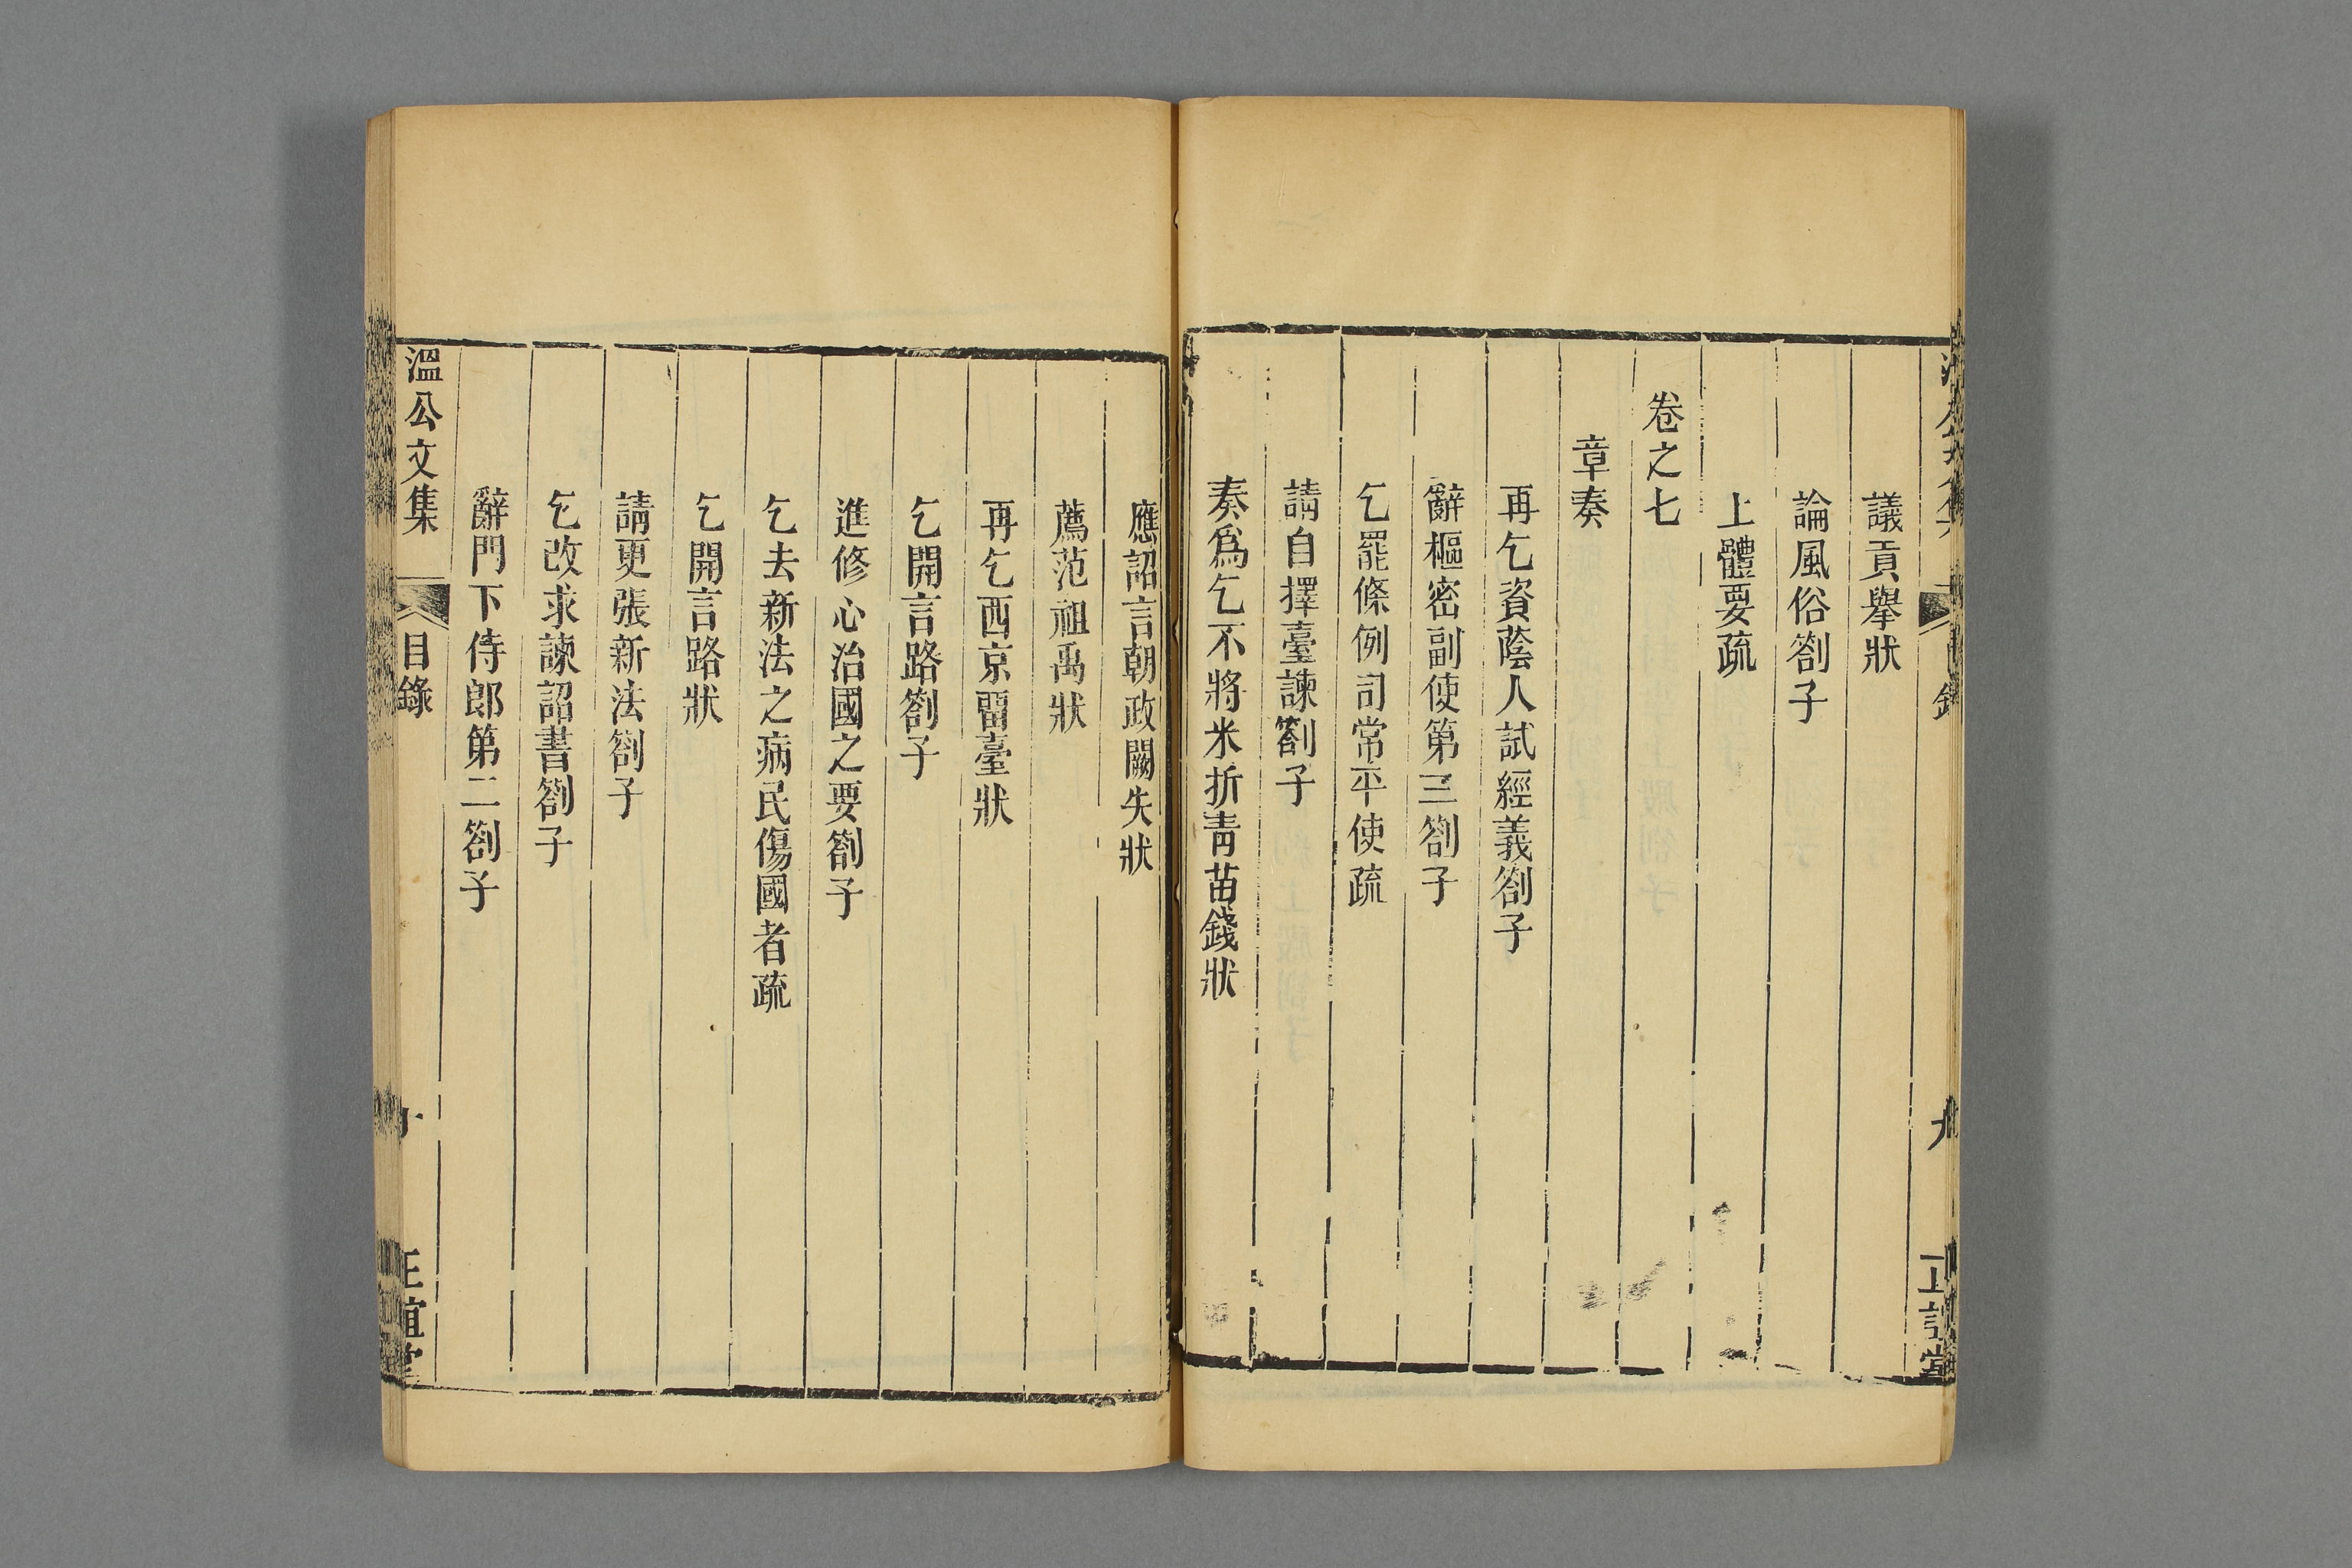 議貢舉狀
論風俗劄子
上體要疏
卷之七
章奏
再乞資蔭人試經義劄子
辭樞密副使第三劄子
乞罷條例司常平使疏
請自擇臺諫劄子
奏爲乞不將米折靑苗錢狀
應詔言朝政闕失狀
薦范祖禹狀
再乞西京畱臺狀
乞開言路劄子
進修心治國之要劄子
乞去新法之病民傷國者疏
乞開言路狀
請更張新法劄子
乞改求諫詔書劄子
辭門下侍郎第二劄子
溫公文集
目錄
正誼堂